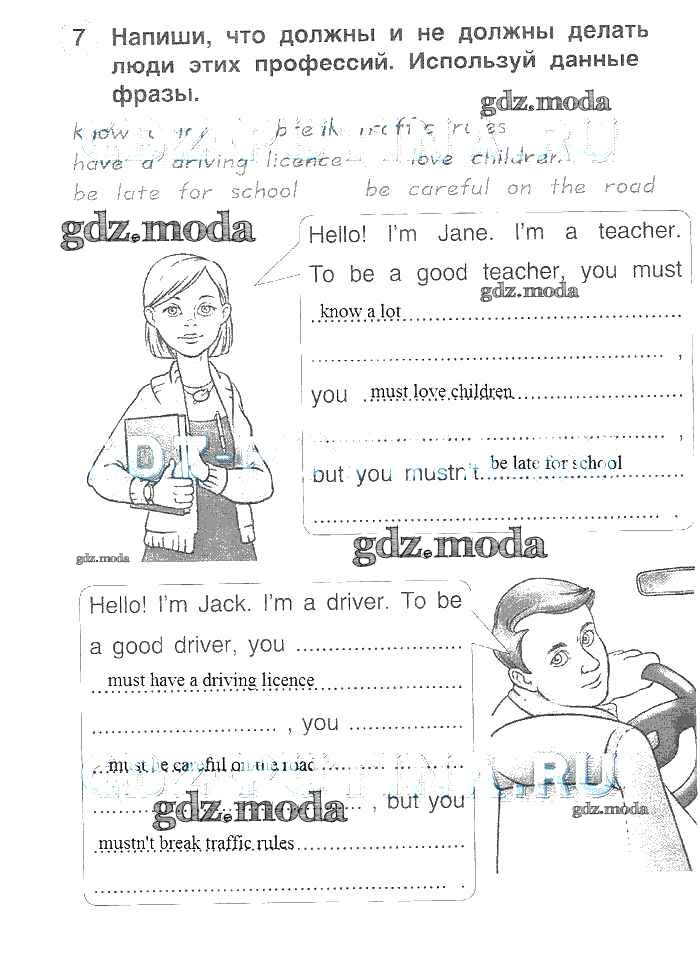 7 Напиши, что должны и не должны делать
люди этих профессий. Используй данные
фразы.
gdz.moda
know break traffic rules
have a driving licence love children
be late for school be careful on the road
gdz.moda
Hello! I'm Jane. I'm a teacher.
To be a good teacher, you must
gdz.moda
know a lot
,
you must love children
,
but you mustn't be late for school
.
gdz.moda
gdz.moda
Hello! I'm Jack. I'm a driver. To be
a good driver, you
must have a driving licence
, you
must be careful on the road
gdz.moda
, but you
gdz.moda
mustn't break traffic rules
.